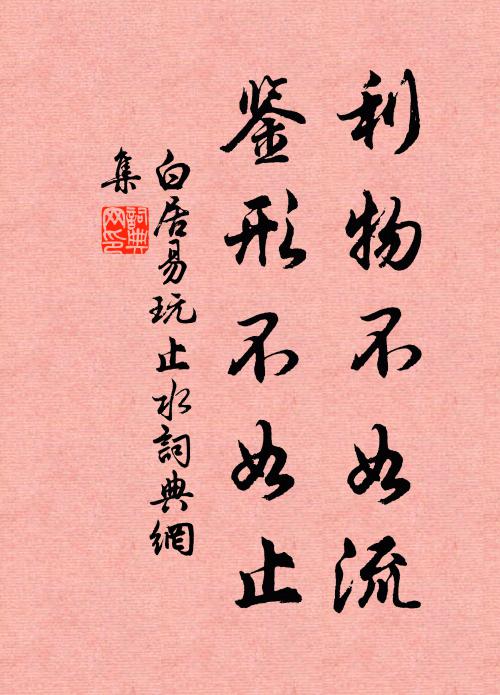 利物不如流
鉴形不如止
白居易玩止水詞典網
集
詞典网印